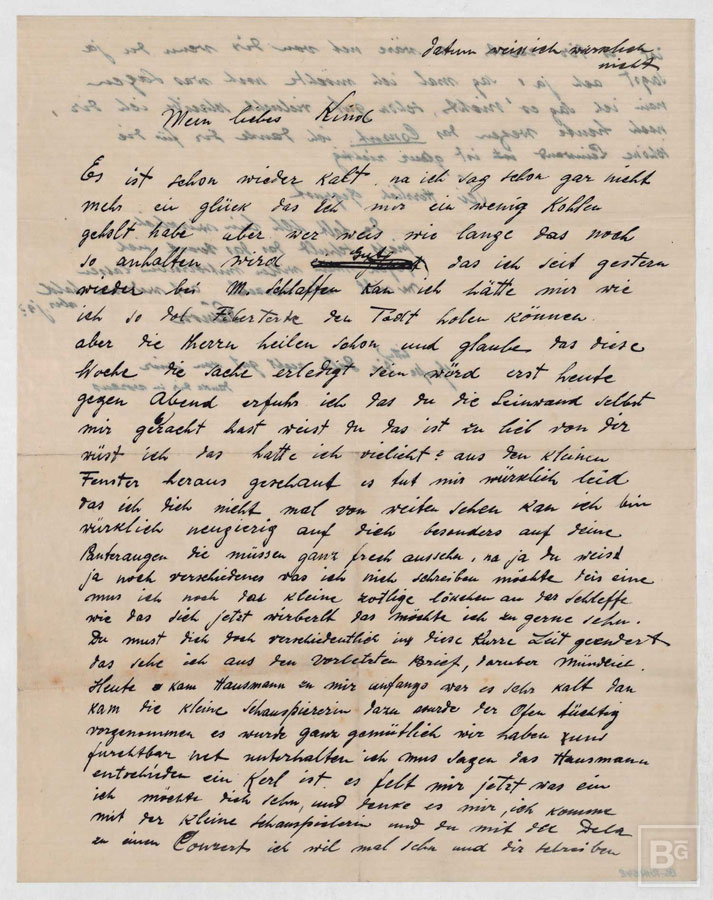 datum weis ich wirklich
nicht
Mein liebes Kind
Es ist schon wieder kalt na ich sag schon gar nicht
mehr ein glück das ich mir ein wenig Kohlen
geholt habe aber wer weis wie lange das noch
so anhalten wird das ich seit gestern
wieder bei M. schlaffen kan ich hätte mir wie
ich so dol Fiberte den Todt holen können
aber die Herrn heilen schon und glaube das diese
Woche die sache erledigt sein würd erst heute
gegen Abend erfuhr ich das du die Leinwand selbst
mir gebracht hast weist du das ist zu lieb von dir
wüst ich das hatte ich vieleicht aus den kleinen
Fenster heraus geschaut es tut mir würklich leid
das ich dich nicht mal von weiten sehen kan ich bin
würklich neugierig auf dich besonders auf deine
Panteraugen die müssen ganz frech aussehn, na ja du weist
ja noch verschiedenes was ich nich schreiben möchte deis eine
mus ich noch das kleine zotlige lökchen an der schleffe
wie das sich jetzt wirbelt das möchte ich zu gerne sehn.
Du must dich doch verschiedentlich in diese kurze Zeit geendert
das sehe ich aus den vorletzten Brief, daruber Mündlich.
Heute kam Hausmann zu mir anfangs war es sehr kalt dan
kam die kleine schauspierin dazu wurde der Ofen tüchtig
vorgenommen es wurde ganz gemütlich wir haben uns
furchtbar net unterhalten ich mus sagen das Hausmann
entschieden ein Kerl ist es felt mir jetzt was ein
ich möchte dich sehn, und denke es mir, ich komme
mit der kleine schauspielerin und du mit der
zu einen Conzert ich wil mal sehn und dir schreiben
BG